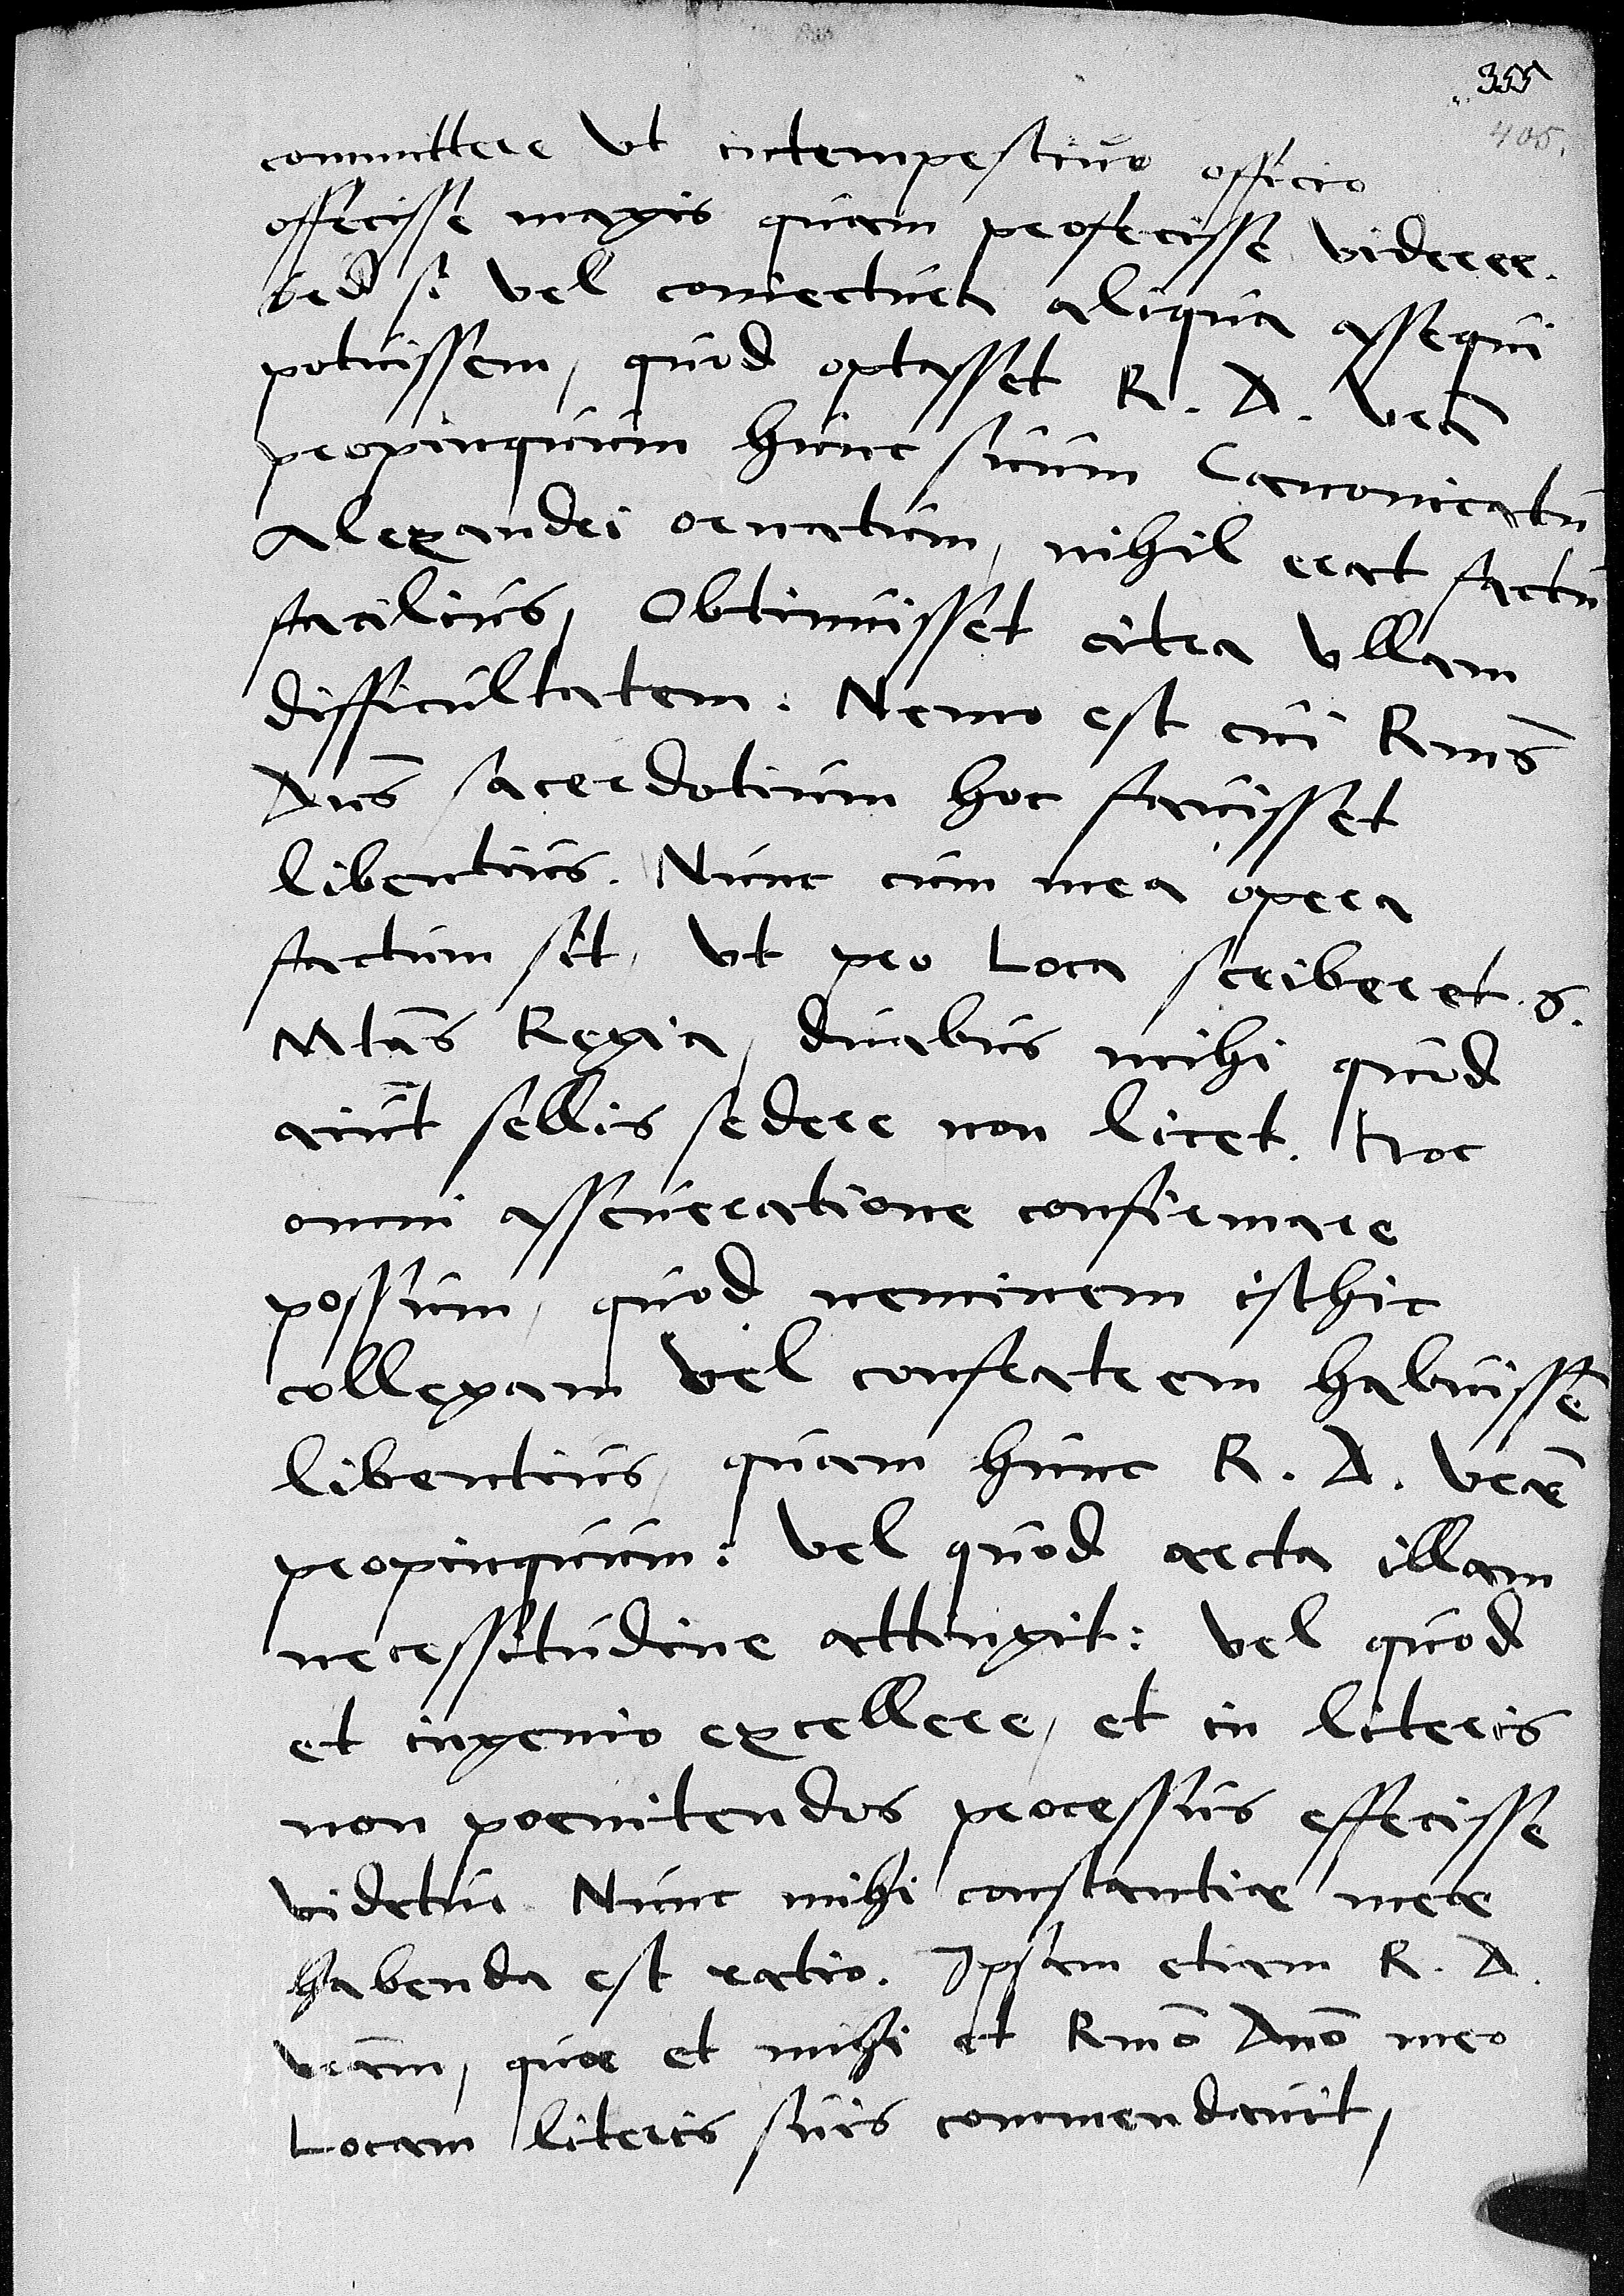 355
405.
committere vt intempestiuo officio
offecisse magis quam profecisse viderer.
Sed si vel coniectura aliqua assequi
potuissem, quod optasset R. D. vra͂
propinquum hunc suum Canonicatu͂
Alexandri ornatum, nihil erat factu
facilius, Obtinuisset citra vllam
difficultatem: Nemo est cui Rm͂s
Dn͂s sacerdotium hoc fauisset
libentius. Nunc cum mea opera
factum sit, vt pro Loca scriberet S.
Mta͂s Regia, duabus mihi quod
aiu͂t sellis sedere non licet. Hoc
omni asseueratione confirmare
possum, quod neminem isthic
collegam vel confratrem habuisse͂
libentius, quam hunc R. D. vrae͂
propinquum: vel quod arcta illam
necessitudine attingit: vel quod
et ingenio excellere, et in literis
non poenitendos processus effecisse
videtur Nunc mihi constantiae meae
habenda est ratio. Ipsam etiam R. D.
vra͂m, quae et mihi et Rmo͂ Dno͂ meo
Locam literis suis commendauit,